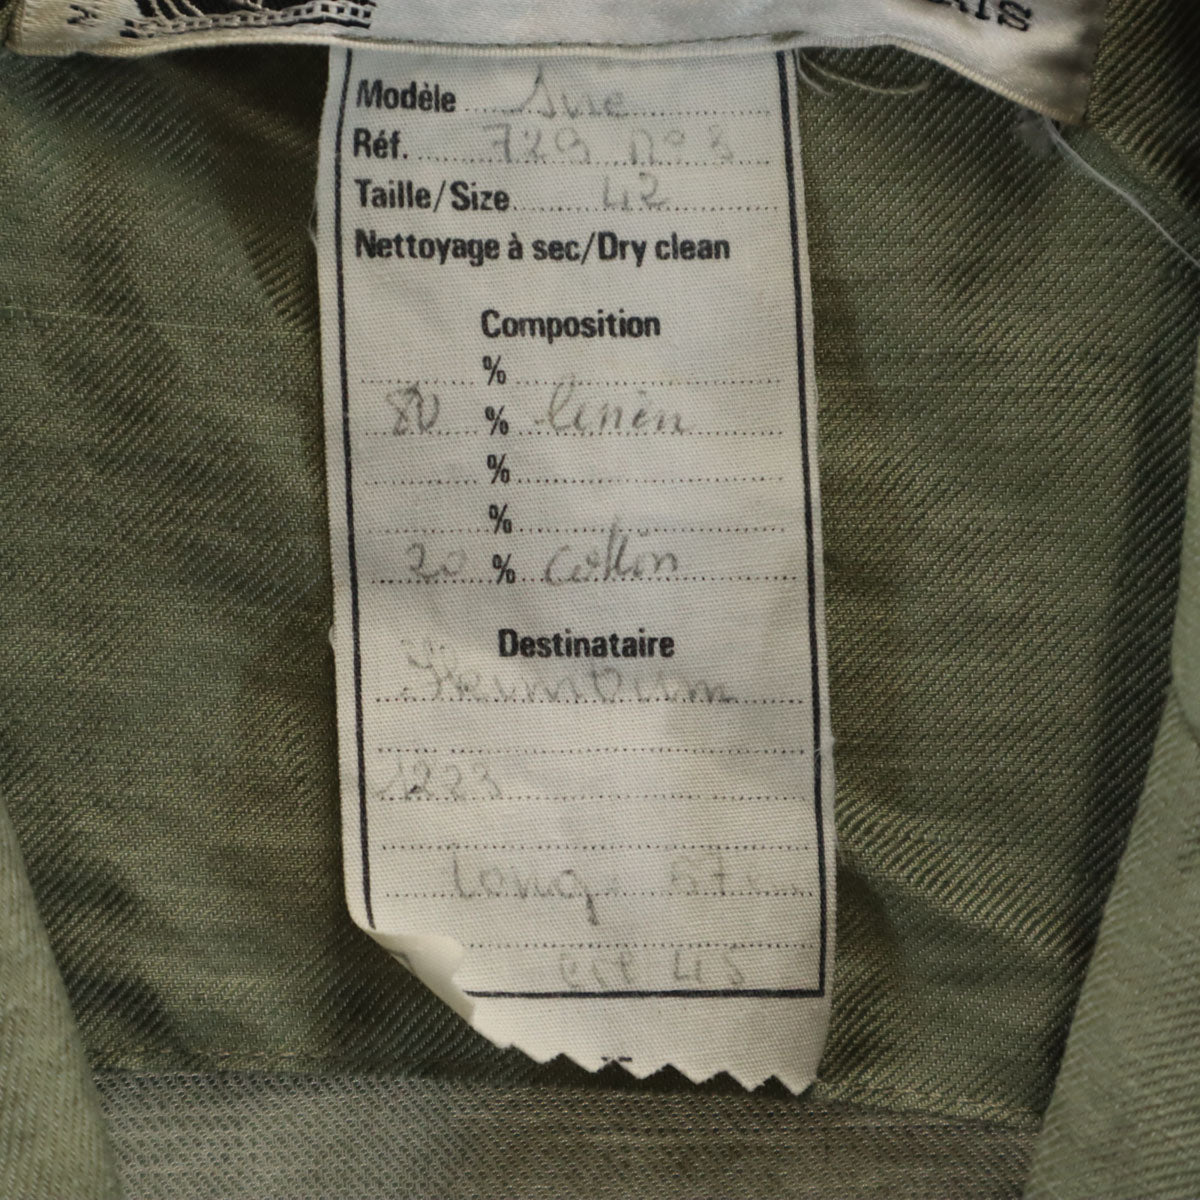 RIS
Modèle
Réf. 729 n° 3
Taille/Size 42
Nettoyage à sec/Dry clean
Composition
%
80 % linen
%
%
20 % cotton
Destinataire
1223
long